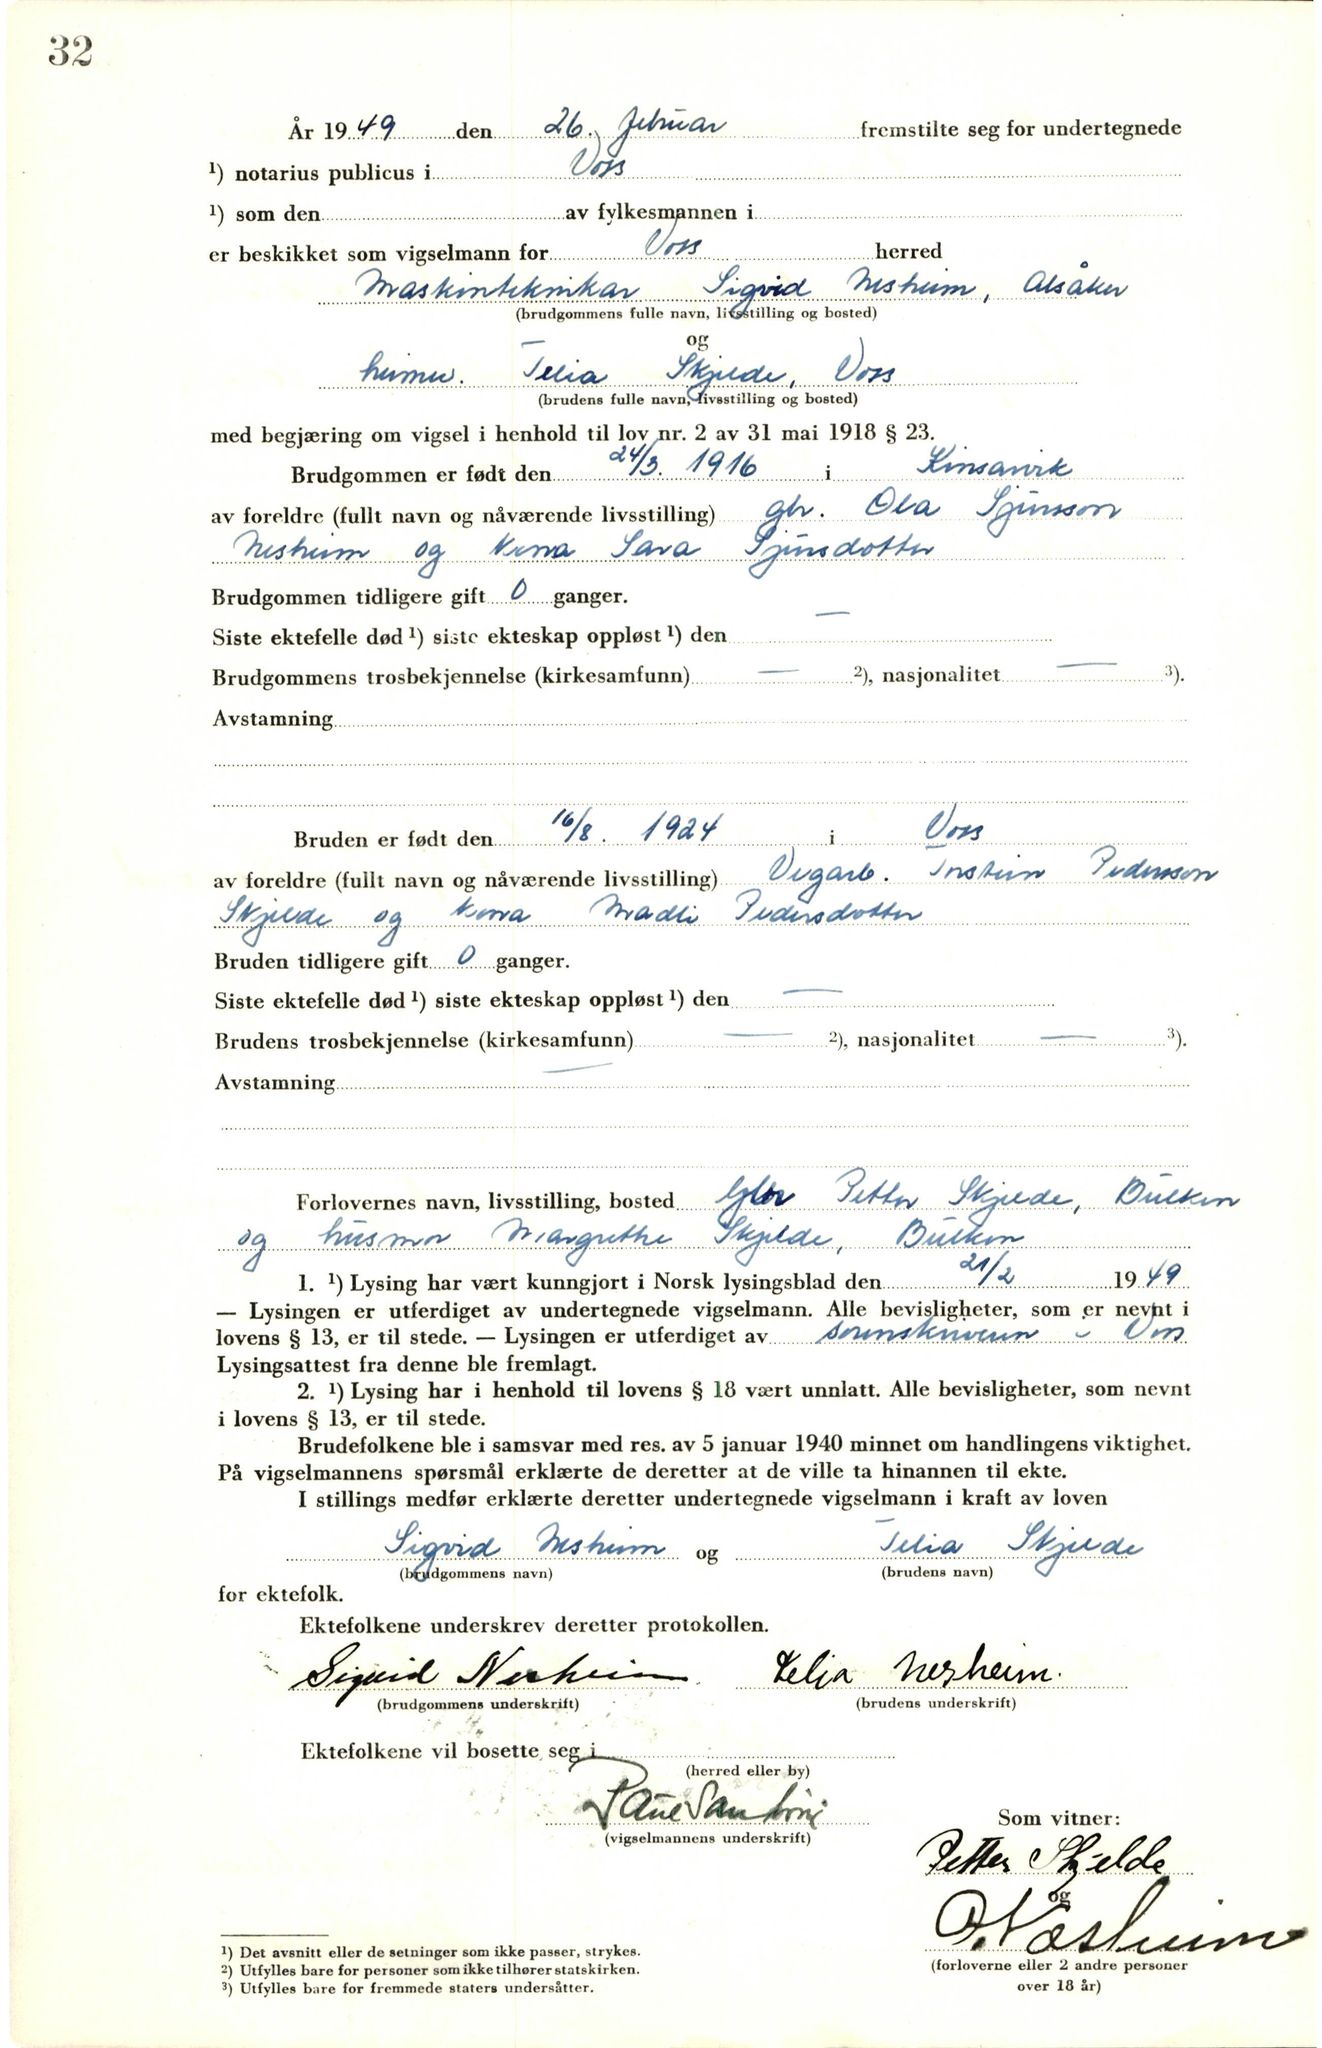 32
År 1949 den 26. februar fremstilte seg for undertegnede
¹) notarius publicus i Voss
¹) som den av fylkesmannen i
er beskikket som vigselmann for Voss herred
Maskinteknikar Sigvid Nesheim, Alsåker
(brudgommens fulle navn, livsstilling og bosted)
og
heimev. Telia Skjelde, Voss
(brudens fulle navn, livsstilling og bosted)
med begjæring om vigsel i henhold til lov nr. 2 av 31 mai 1918 § 23.
Brudgommen er født den 24/3. 1916 i Kinsarvik
av foreldre (fullt navn og nåværende livsstilling) gbr. Ola Sjursson
Nesheim og kona Sara Sjursdotter
Brudgommen tidligere gift 0 ganger.
Siste ektefelle død ¹) siste ekteskap oppløst ¹) den —
Brudgommens trosbekjennelse (kirkesamfunn) — ²), nasjonalitet — ³).
Avstamning
Bruden er født den 16/8. 1924 i Voss
av foreldre (fullt navn og nåværende livsstilling) Vegarb. Torstein Pedersson
Skjelde og kona Madli Pedersdotter
Bruden tidligere gift 0 ganger.
Siste ektefelle død ¹) siste ekteskap oppløst ¹) den —
Brudens trosbekjennelse (kirkesamfunn) — ²), nasjonalitet — ³).
Avstamning —
Forlovernes navn, livsstilling, bosted Gbr Petter Skjelde, Bulken
og husmor Margrethe Skjelde, Bulken
1. ¹) Lysing har vært kunngjort i Norsk lysingsblad den 21/2 1949
— Lysingen er utferdiget av undertegnede vigselmann. Alle bevisligheter, som er nevnt i
lovens § 13, er til stede. — Lysingen er utferdiget av sorenskriveren i Voss
Lysingsattest fra denne ble fremlagt.
2. ¹) Lysing har i henhold til lovens § 18 vært unnlatt. Alle bevisligheter, som nevnt
i lovens § 13, er til stede.
Brudefolkene ble i samsvar med res. av 5 januar 1940 minnet om handlingens viktighet.
På vigselmannens spørsmål erklærte de deretter at de ville ta hinannen til ekte.
I stillings medfør erklærte deretter undertegnede vigselmann i kraft av loven
Sigvid Nesheim og Telia Skjelde
(brudgommens navn) (brudens navn)
for ektefolk.
Ektefolkene underskrev deretter protokollen.
Sigvid Nesheim Telia Nesheim.
(brudgommens underskrift) (brudens underskrift)
Ektefolkene vil bosette seg i
(herred eller by)
(vigselmannens underskrift)
Som vitner:
Petter Skjelde
og
O. Næsheim
(forloverne eller 2 andre personer
over 18 år)
¹) Det avsnitt eller de setninger som ikke passer, strykes.
²) Utfylles bare for personer som ikke tilhører statskirken.
³) Utfylles bare for fremmede staters undersåtter.